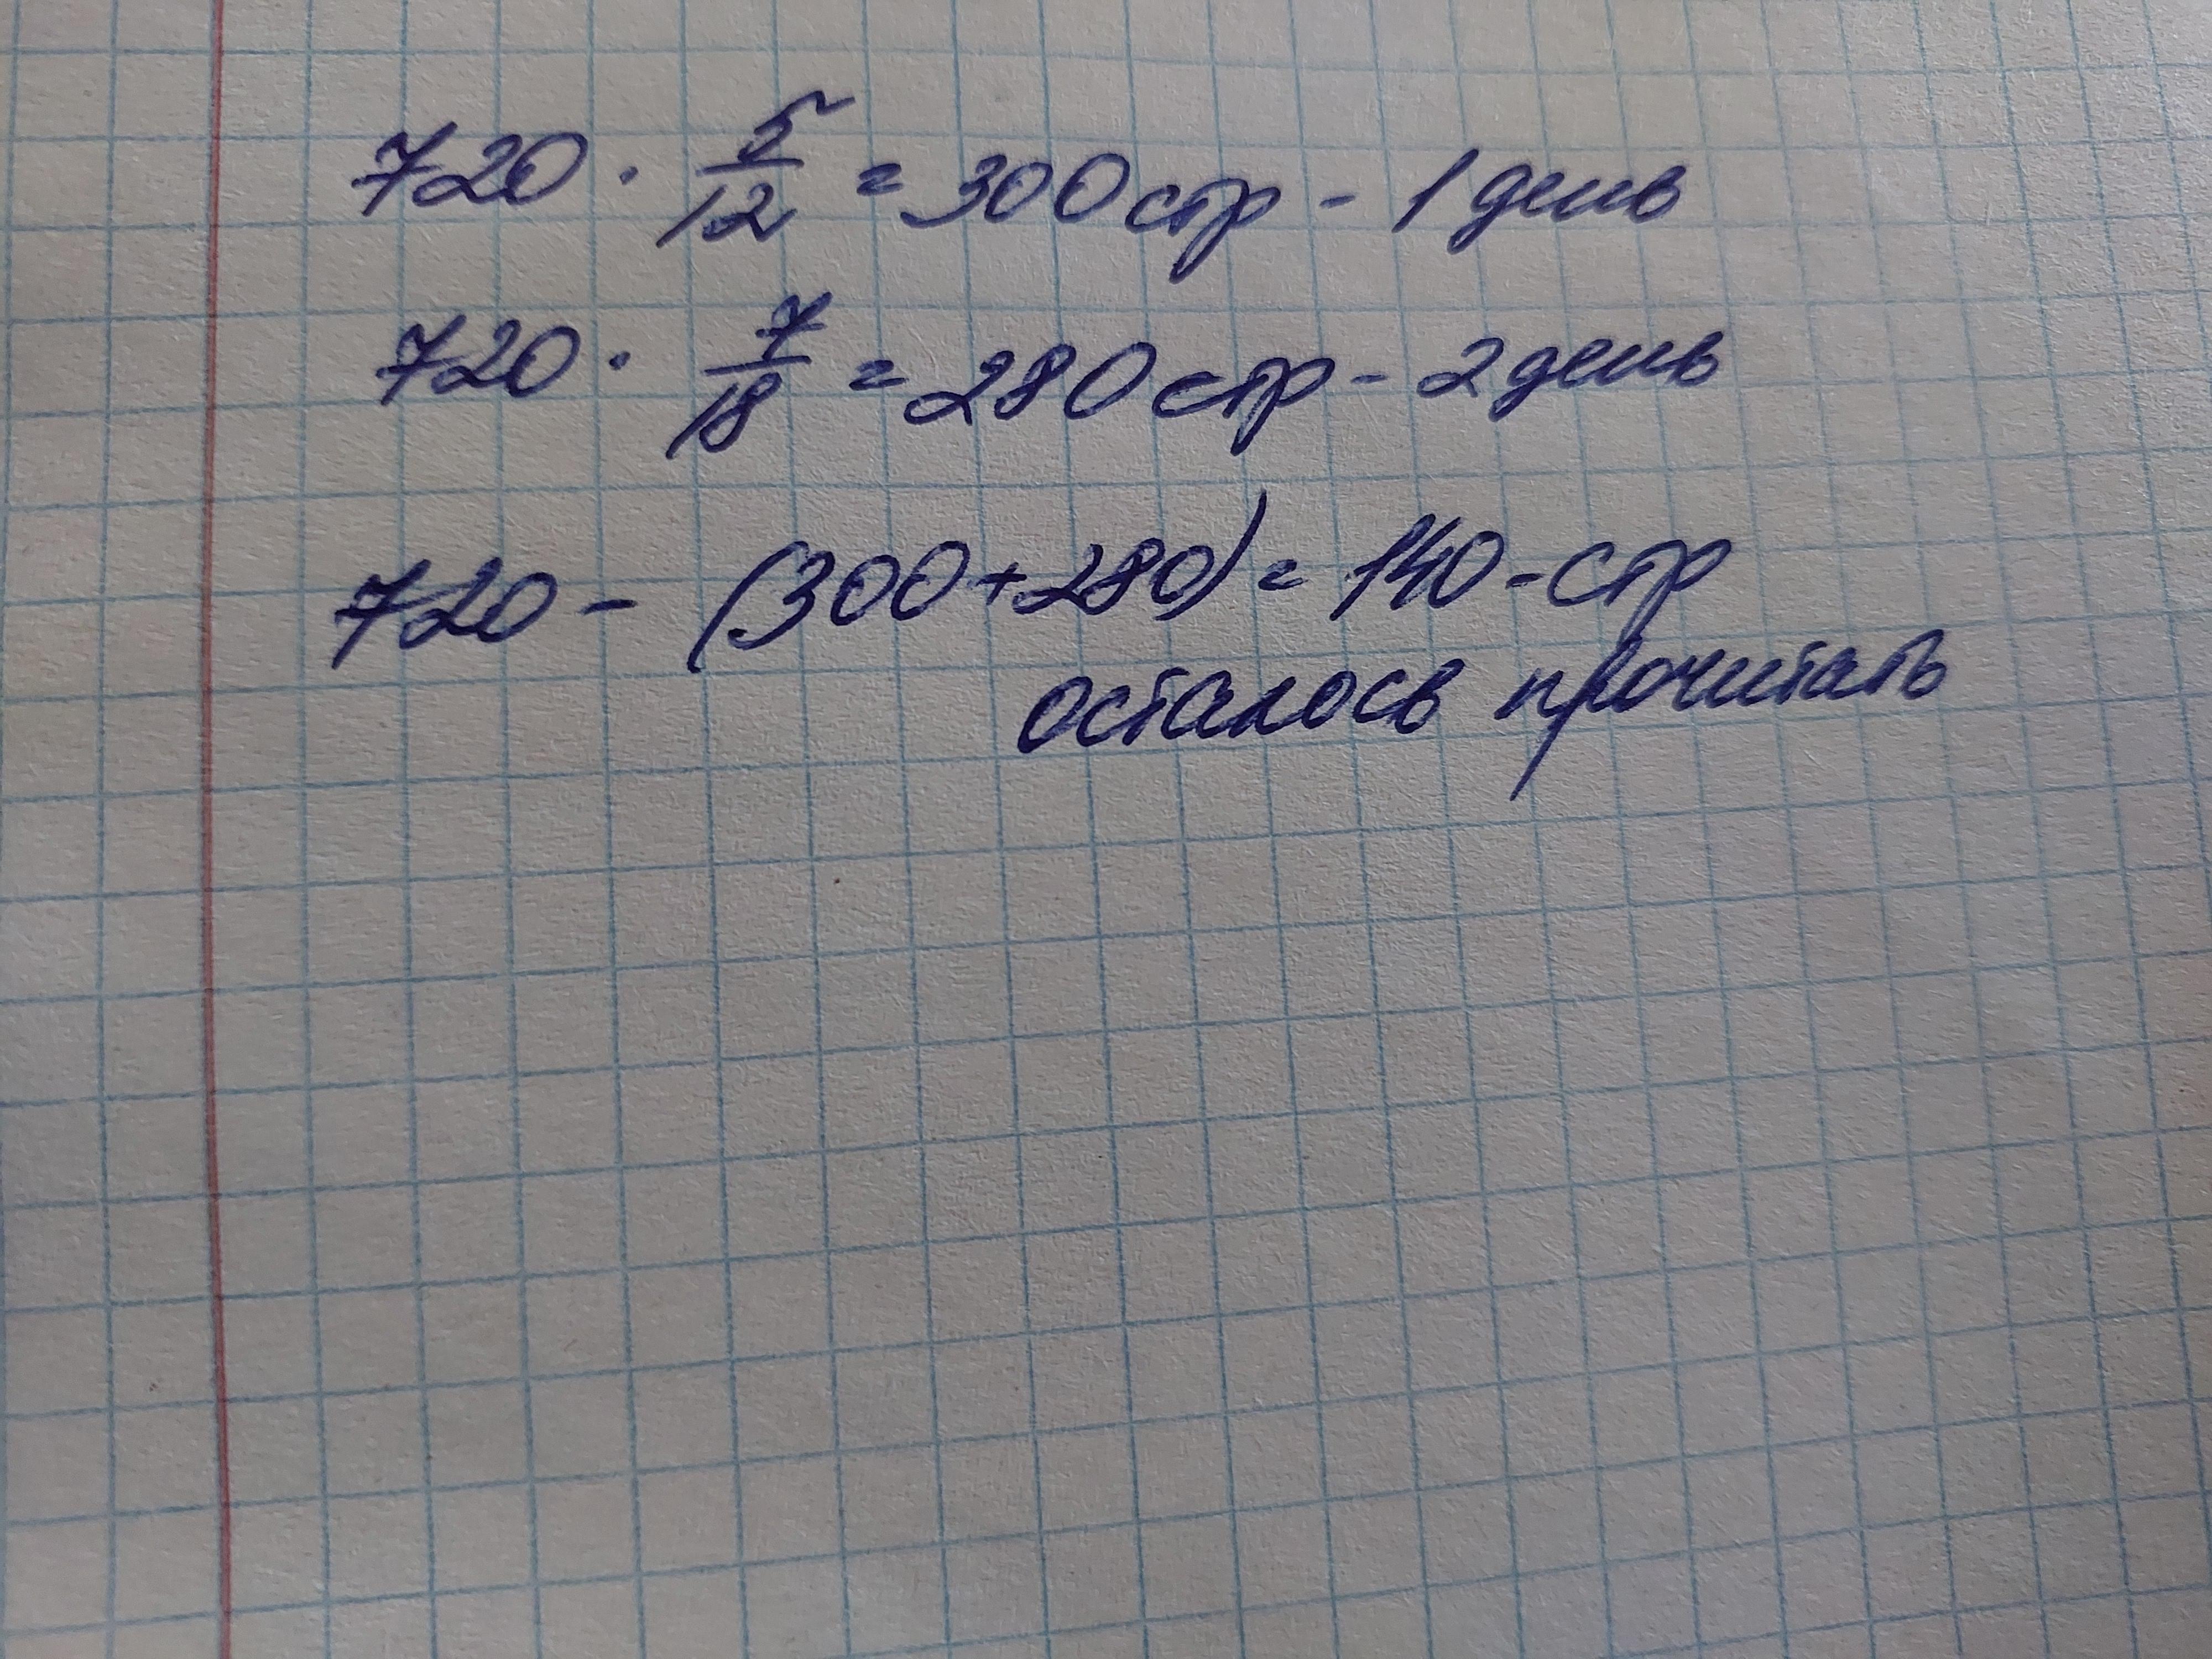 720 · 5/12 = 300 стр - 1 день
720 · 7/18 = 280 стр - 2 день
720 - (300+280) = 140 - стр
осталось прочитать